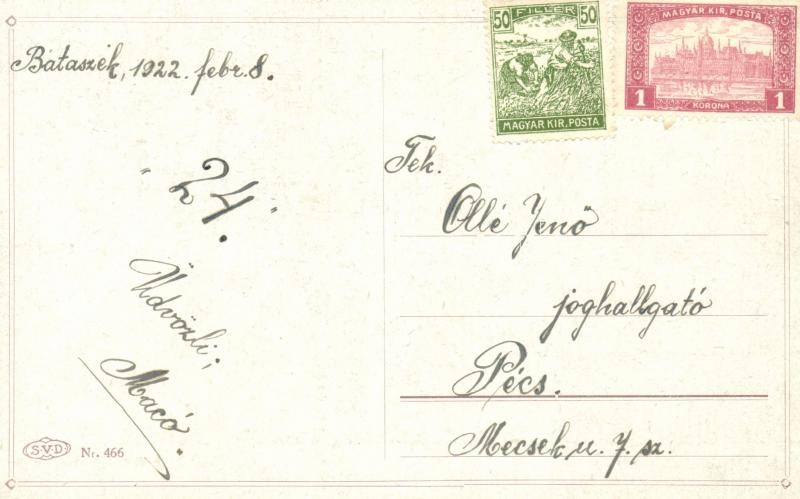 Bátaszék, 1922. febr. 8.
50 FILLÉR 50
MAGYAR KIR. POSTA
MAGYAR KIR. POSTA
1 KORONA 1
Tek.
Ollé Jenő
joghallgató
Pécs.
Mecsek u. 7. sz.
"24."
Üdvözli;
Macó.
S.V.D. Nr. 466